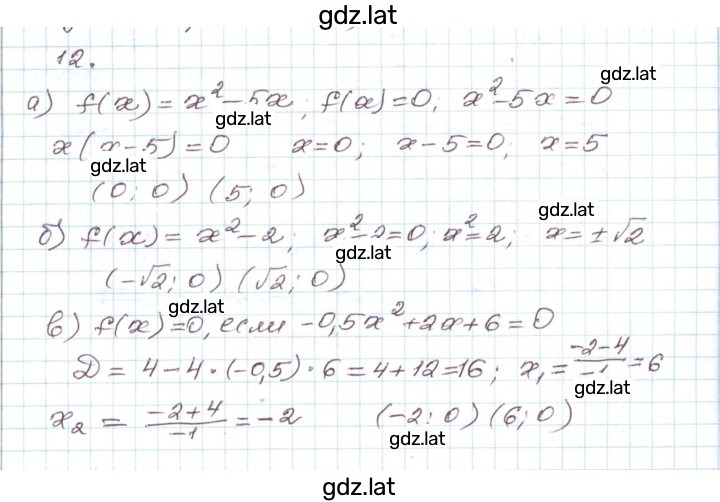 gdz.lat
12.
gdz.lat
а) f(x) = x²-5x; f(x)=0; x²-5x=0
gdz.lat
x(x-5)=0 x=0; x-5=0; x=5
gdz.lat
(0; 0) (5; 0)
gdz.lat
б) f(x) = x²-2; x²-2=0; x²=2; x=±√2
gdz.lat
(-√2; 0) (√2; 0)
gdz.lat
в) f(x)=0, если -0,5x²+2x+6=0
D = 4-4·(-0,5)·6=4+12=16; x₁=\frac{-2-4}{-1}=6
gdz.lat
x₂ = \frac{-2+4}{-1}=-2 (-2; 0) (6; 0)
gdz.lat
gdz.lat